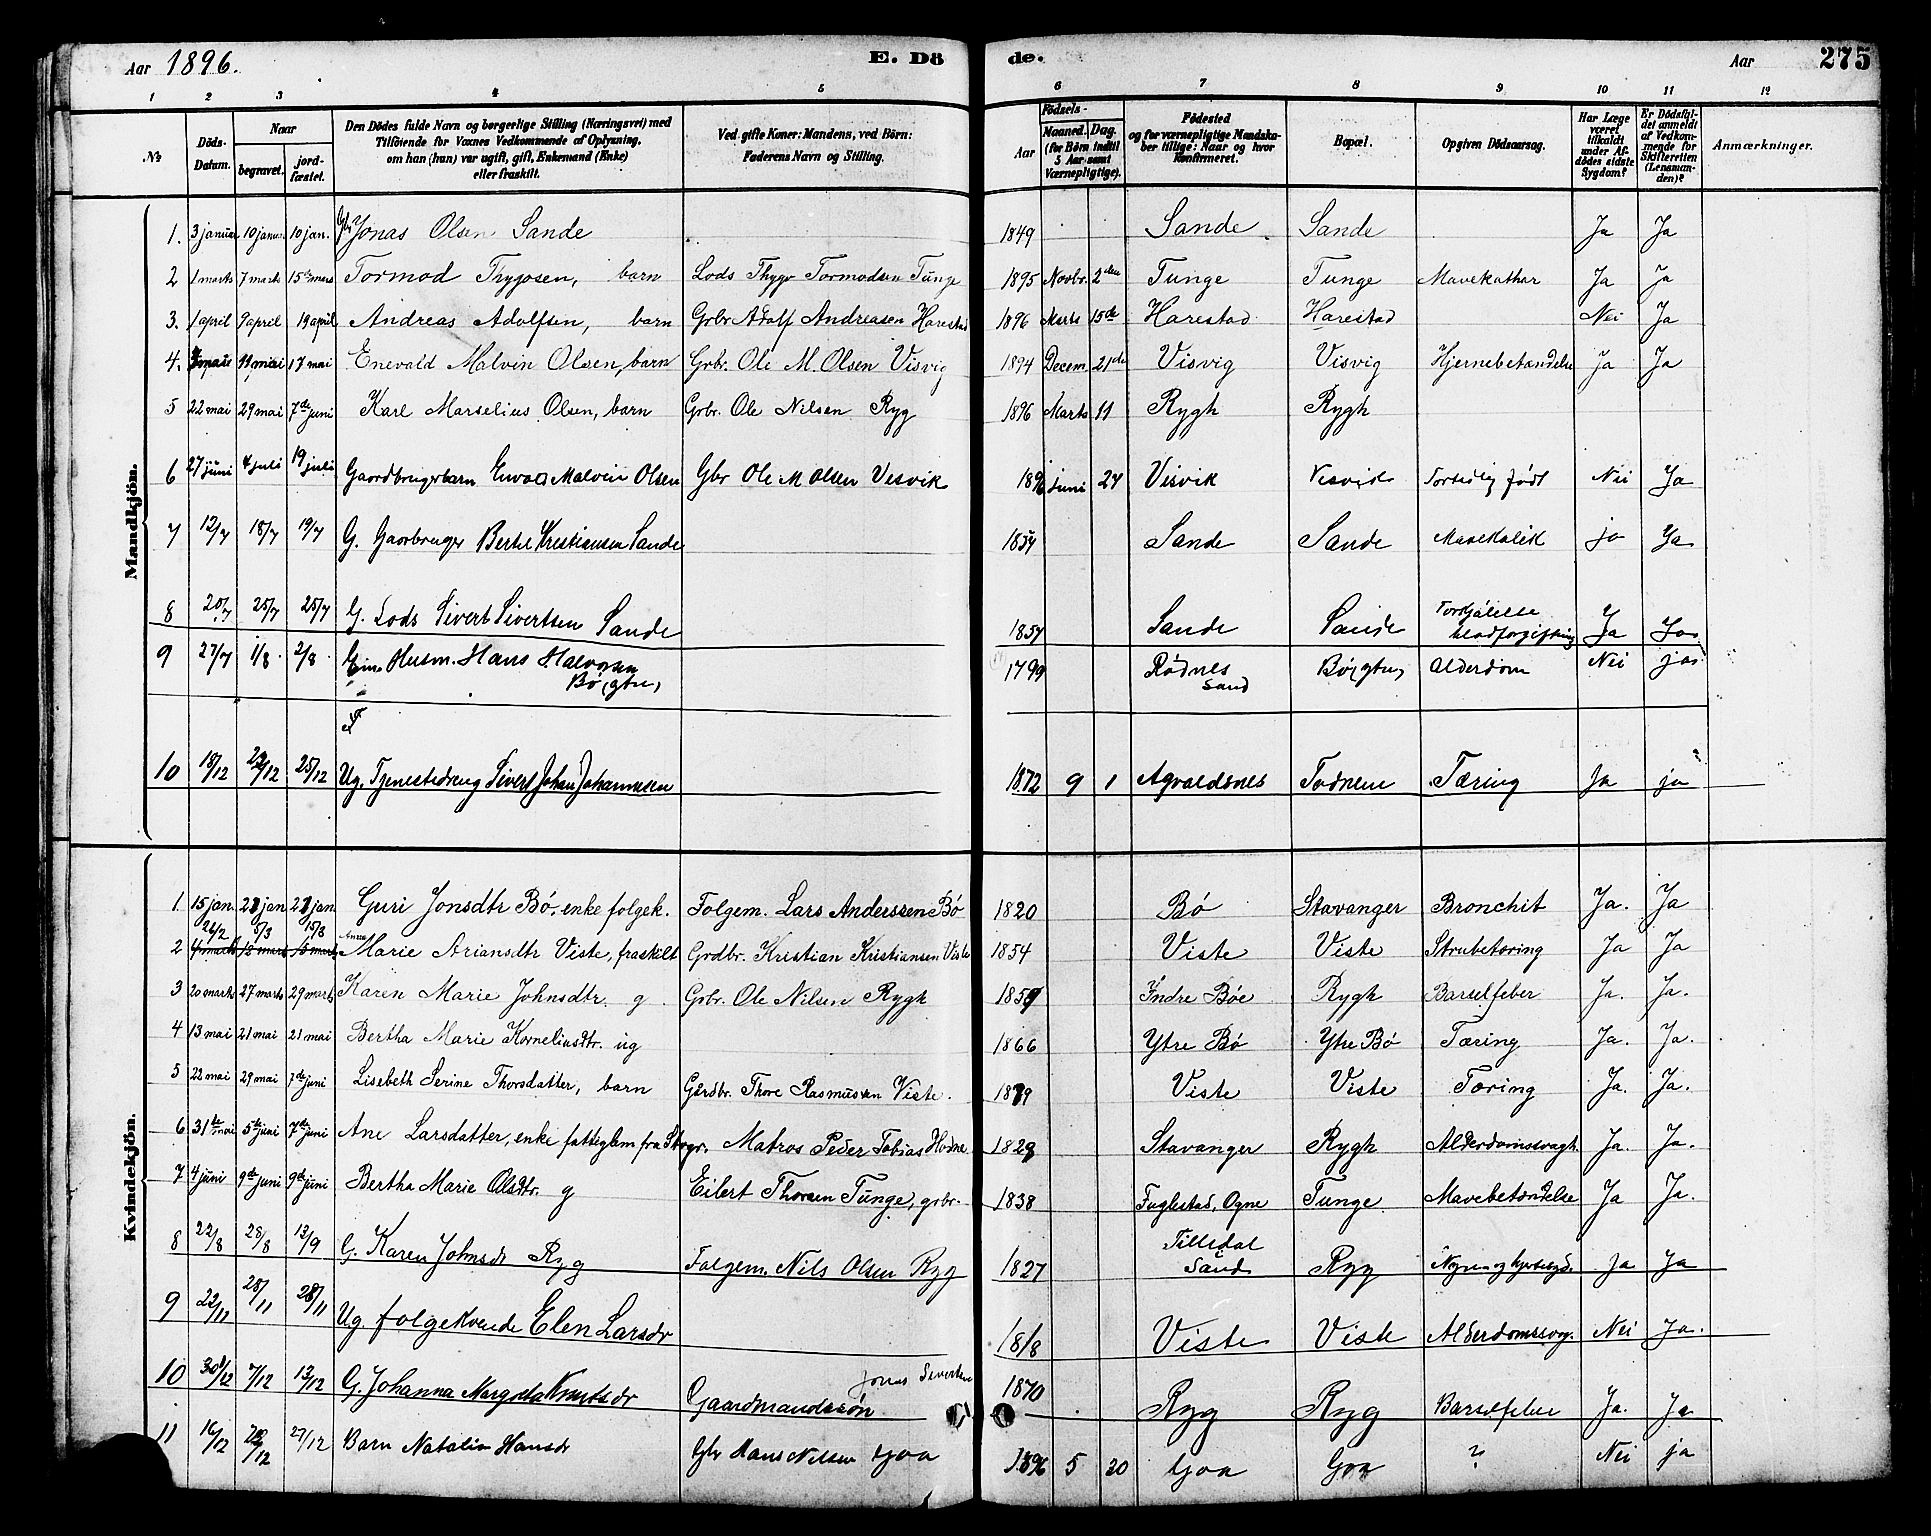 Aar 1896. E. Dö de. Aar 275
1 2 3 4 5 6 7 8 9 10 11 12
No. Döds-Datum. Naar begravet. jord-fæstet. Den Dödes fulde Navn og borgerlige Stilling (Næringsvei) med Tilföiende for Voxnes Vedkommende af Oplysning, om han (hun) var ugift, gift, Enkemand (Enke) eller fraskilt. Ved gifte Koner: Mandens, ved Börn: Faderens Navn og Stilling. Födsels- Aar Maaned. Dag. (for Börn indtil 5 Aar samt Værnepligtige). Födested og for værnepligtige Mandskaber tillige: Naar og hvor Konfirmeret. Bopæl. Opgiven Dödsaarsag. Har Læge været tilkaldt under Afdödes sidste Sygdom? Er Dödsfaldet anmeldt af Vedkommende for Skifteretten (Lensmanden)? Anmærkninger.
Mandkjön.
1. 3 januar 10 janu. 10 jan. Gbr Jonas Olsen Sande 1849 Sande Sande Ja Ja
2 1 marts 7 marts 15de mars Tormod Trygosen, barn Lods Thygo Tormodsen Tunge 1895 Novbr. 2den Tunge Tunge Mavekathar Ja Ja
3. 1 april 9 april 19 april Andreas Adolfsen, barn Grbr Adolf Andreasen Harestad 1896 Marts 15de Harestad Harestad Nei Ja
4. mai 11 mai 17 mai Enevald Malvin Olsen, barn Grbr. Ole M. Olsen Visvig 1894 Decem. 21de Visvig Visvig Hjernebetændelse Ja Ja
5 22 mai 29 mai 7de juni Karl Marselius Olsen, barn Grbr. Ole Nilsen Ryg 1896 Marts 11 Rygh Rygh
6 27 juni 4 juli 19 juli Gaardbrugerbarn Envald Malvin Olsen Gbr Ole M Olsen Vesvik 1896 juni 27 Visvik Visvik Fortidlig födt Nei Ja
7 12/7 18/7 19/7 G. Gaarbruger Bertel Kristiansen Sande 1854 Sande Sande Mavekolik jo Ja
8 20/7 25/7 25/7 G. Lods Sivert Sivertsen Sande 1857 Sande Sande blodforgiftning Ja Ja
9 27/7 1/8 2/8 Em Husm. Hans Halvorsen Bö, gtn, 1799 Rødnes Sand Bö, gtn, Alderdom Nei ja
10 18/12 22/12 25/12 Ug. Tjenestedreng Sivert Johan Johannesen 1872 9 1 Agvaldsnes Todnem Tæring Ja ja
Kvindekjön.
1 15 jan. 21 jan 21 jan Guri Jonsdtr Bö, enke folgek. Folgem. Lars Anderssen Bö 1820 Bö Stavanger Bronchit Ja. Ja
26/2 5/3 15/3 Anna
2 4 marts 12 marts 15 marts Marie Ariansdtr Viste, fraskilt Grdbr. Kristian Kristiansen Viste 1854 Viste Viste Strubetæring Ja Ja
3 20 marts 27 marts 29 marts Karen Marie Johnsdtr. g Grbr. Ole Nilsen Rygh 1859 Indre Böe Rygh Barselfeber Ja. Ja.
4 13 mai 21 mai 21 mai Bertha Marie Korneliusdtr. ug 1866 Ytre Bö Ytre Bö Tæring Ja. Ja.
5 22 mai 29 mai 7de juni Lisebeth Serine Thorsdatter, barn Gårdbr. Thore Rasmussen Viste. 1879 Viste Viste Tæring Ja. Ja.
6 31te mai 5te juni 7de juni Ane Larsdatter, enke fattiglem fra Stvgr. Matros Peder Tobias Hodne 1828 Stavanger Rygh Alderdomssvagh. Ja. Ja.
7 4 juni 9de juni 9de juni Bertha Marie Olsdtr. g Eilert Thorsen Tunge, grbr. 1838 Fuglestad, Ogne Tunge Mavebetændelse Ja Ja.
8 22/8 28/8 13/9 G. Karen Johnsdr Ryg Folgem. Nils Olsen Ryg 1827 Tilledal Sand Ryg Ja Ja
9 22/11 28/11 28/11 Ug folgekvende Elen Larsdr 1818 Viste Viste Alderdomssvag. Nei Ja.
10 30/12 7/12 13/12 G. Johanna Margreta Knutsdr Gaardmandssön Jonas Sivertsen 1870 Ryg Ryg Barselfeber Ja. Ja
11 16/12 22/12 27/12 Barn Natalia Hansdr Gbr Hans Nilsen Goa 1896 5 20 Goa Goa ? Nei ja